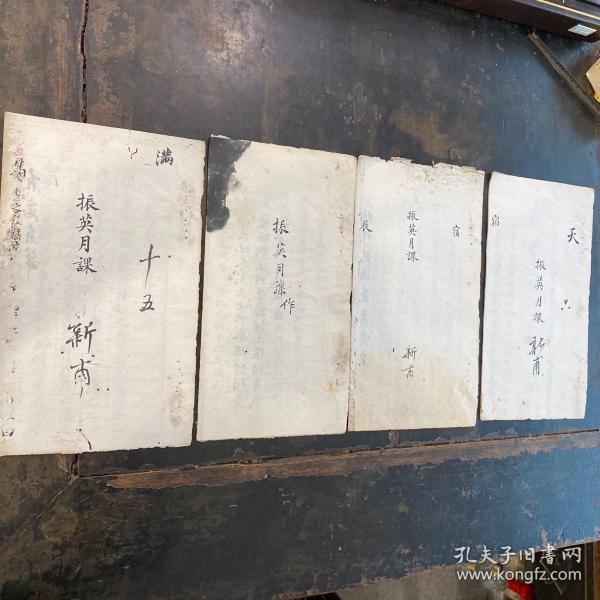 滿
十五
振英月課
新甫
振英月課作
宿
振英月課
辰
新甫
天
宿
振英月課
新甫
孔夫子旧书网
www.kongfz.com